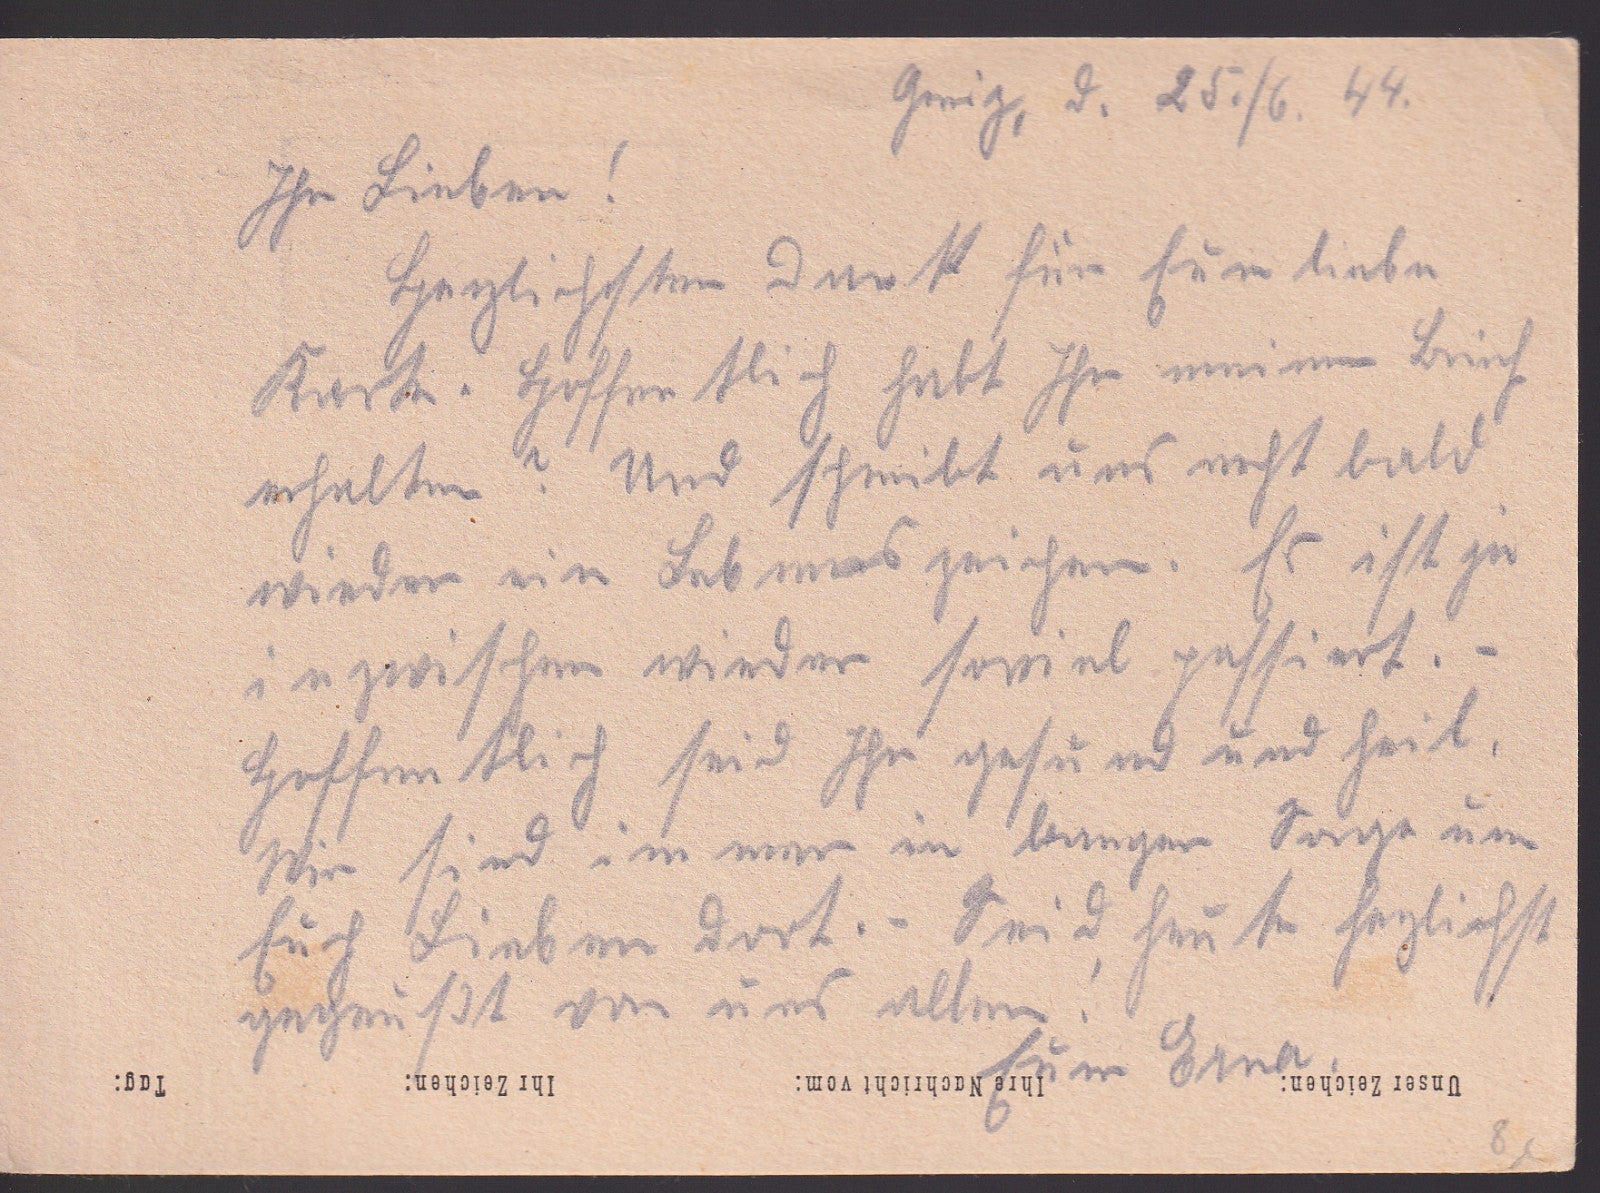 Greiz, d. 25./6. 44.
Ihr Lieben!
Herzlichsten Dank für Eure liebe
Karte. Hoffentlich habt Ihr meinen Brief
erhalten? Und schreibt uns recht bald
wieder ein Lebenszeichen. Es ist ja
inzwischen wieder soviel passiert. -
Hoffentlich seid Ihr gesund und heil.
Wir sind immer in banger Sorge um
Euch Lieben dort. - Seid heute herzlichst
gegrüßt von uns allen!
Eure Erna.
Unser Zeichen: Ihre Nachricht vom: Ihr Zeichen: Tag: